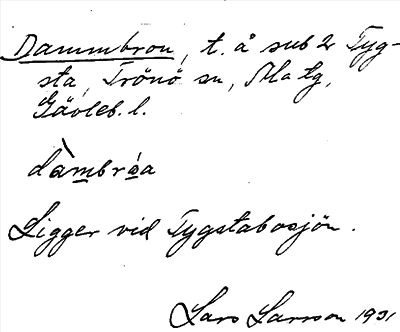 Dammbron, t. å sub 2 Tyg-
sta, Trönö sn, Ala tg,
Gävleb. l.
dàmbróa
Ligger vid Tygstabosjön.
Lars Larsson 1931